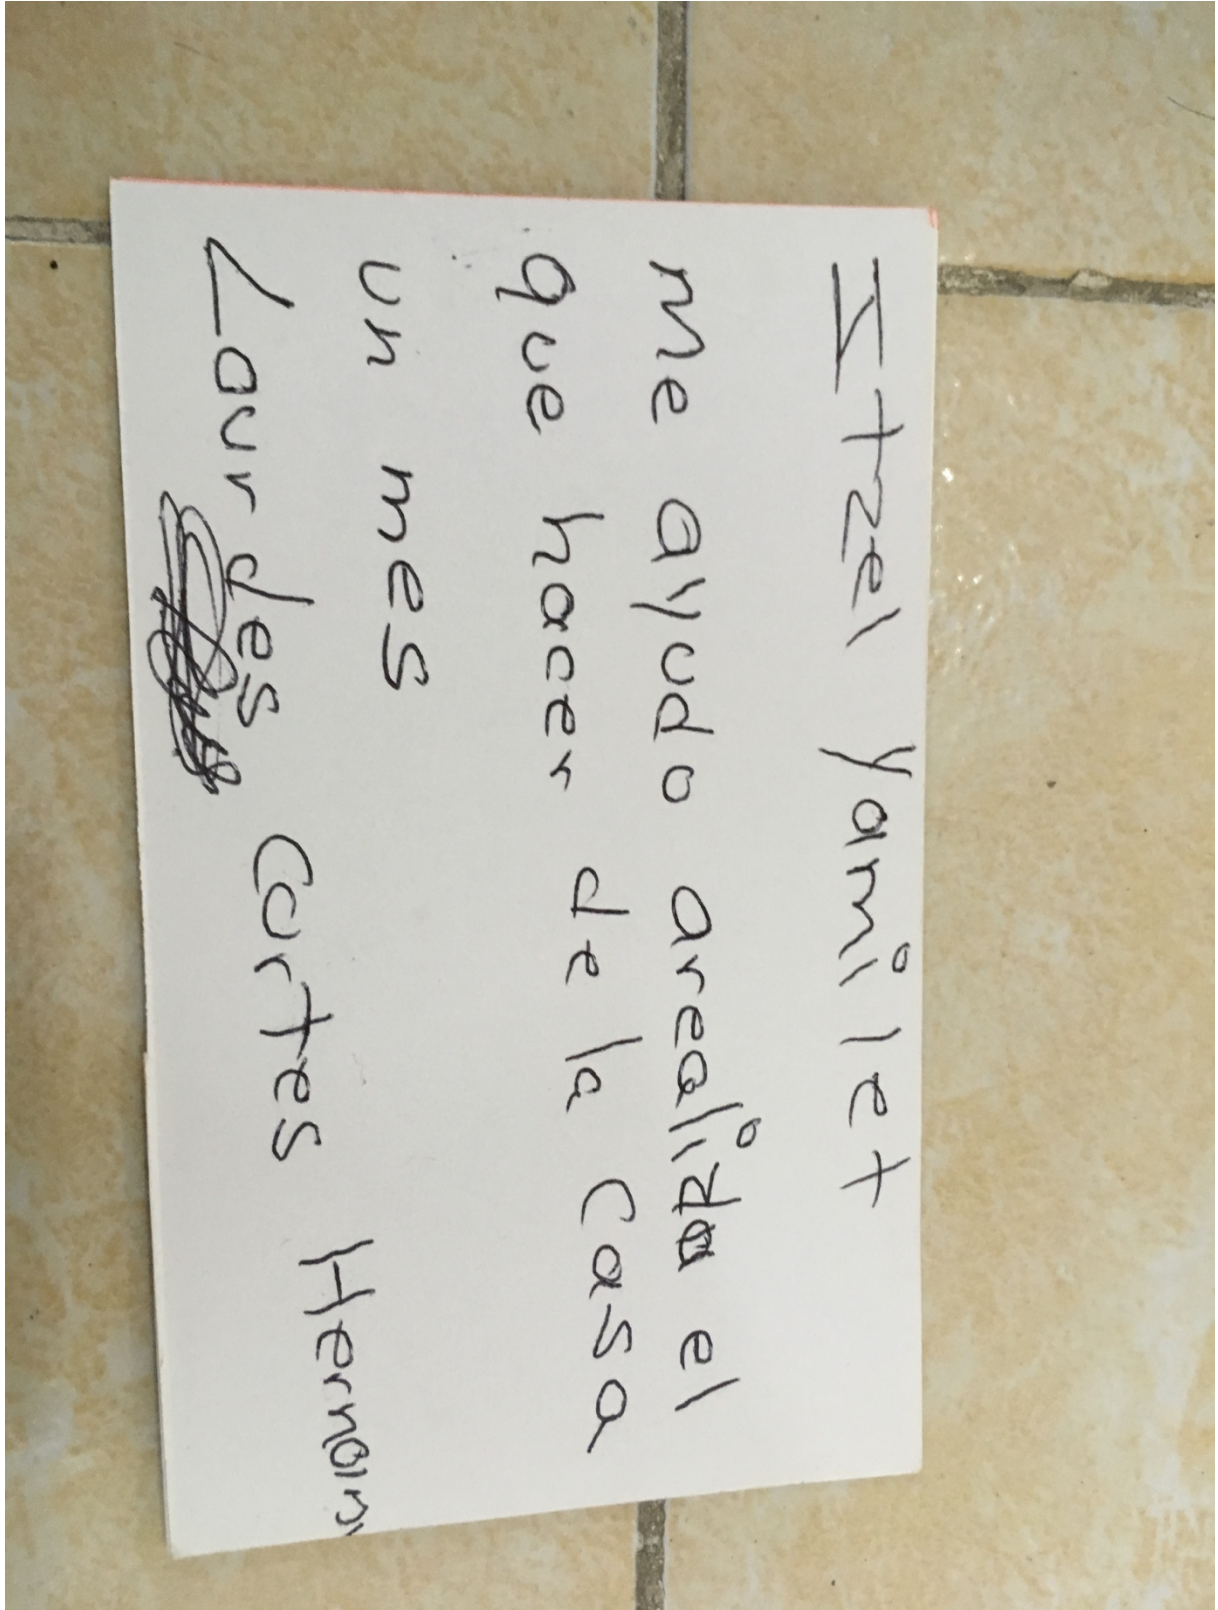 Itzel Yamilet
me ayudo arealida el
que hacer de la casa
un mes
Lourdes Cortes Hernan